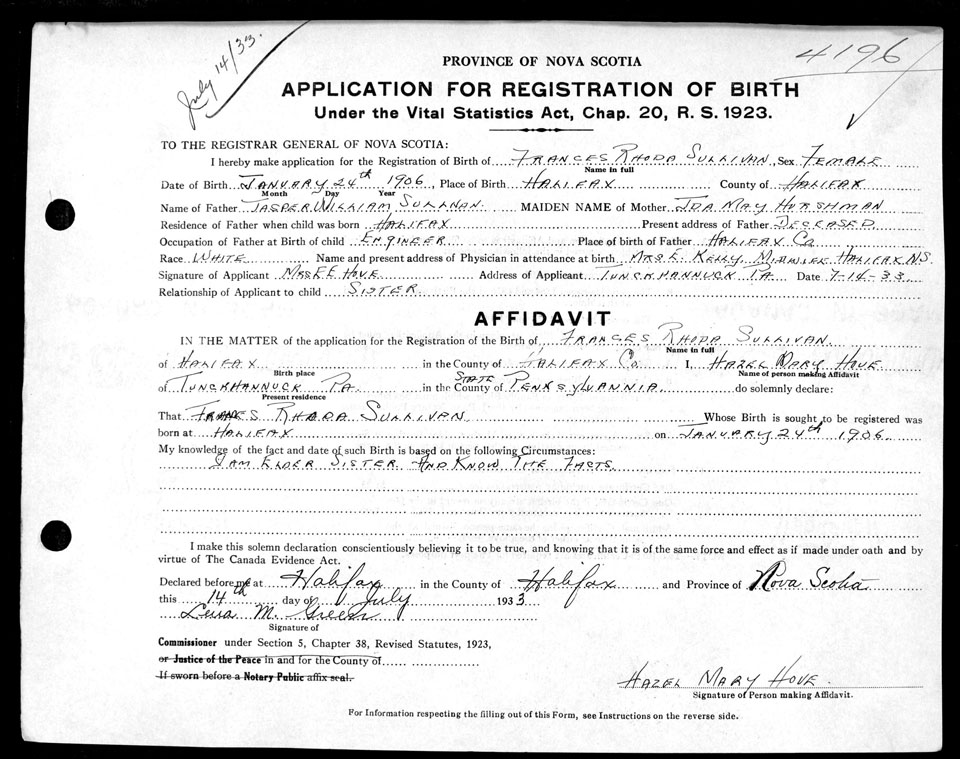 July 14/33.
4196
PROVINCE OF NOVA SCOTIA
APPLICATION FOR REGISTRATION OF BIRTH
Under the Vital Statistics Act, Chap. 20, R. S. 1923.
TO THE REGISTRAR GENERAL OF NOVA SCOTIA:
I hereby make application for the Registration of Birth of FRANCES RHODA SULLIVAN, Sex FEMALE
Name in full
Date of Birth JANUARY 24th 1906, Place of Birth HALIFAX County of HALIFAX
Month Day Year
Name of Father JASPER WILLIAM SULLIVAN. MAIDEN NAME of Mother IDA MAY HURSHMAN
Residence of Father when child was born HALIFAX Present address of Father DECEASED
Occupation of Father at Birth of child ENGINEER Place of birth of Father HALIFAX Co
Race WHITE Name and present address of Physician in attendance at birth MRS E. KELLY, MIDWIFE HALIFAX N.S.
Signature of Applicant MRS E E HOVE Address of Applicant TUNCKHANNUCK PA. Date 7-14-33
Relationship of Applicant to child SISTER
AFFIDAVIT
IN THE MATTER of the application for the Registration of the Birth of FRANCES RHODA SULLIVAN
Name in full
of HALIFAX in the County of HALIFAX Co I, HAZEL MARY HOVE
Birth place Name of person making Affidavit
of TUNCKHANNUCK PA. in the County of STATE PENNSYLVANNIA do solemnly declare:
Present residence
That FRANCES RHODA SULLIVAN Whose Birth is sought to be registered was
born at HALIFAX on JANUARY 24th 1906.
My knowledge of the fact and date of such Birth is based on the following Circumstances:
I AM ELDER SISTER AND KNOW THE FACTS
I make this solemn declaration conscientiously believing it to be true, and knowing that it is of the same force and effect as if made under oath and by
virtue of The Canada Evidence Act.
Declared before me at Halifax in the County of Halifax and Province of Nova Scotia
this 14th day of July 1933
Lena M. Green
Signature of
Commissioner under Section 5, Chapter 38, Revised Statutes, 1923,
or Justice of the Peace in and for the County of
If sworn before a Notary Public affix seal.
HAZEL MARY HOVE.
Signature of Person making Affidavit.
For Information respecting the filling out of this Form, see Instructions on the reverse side.